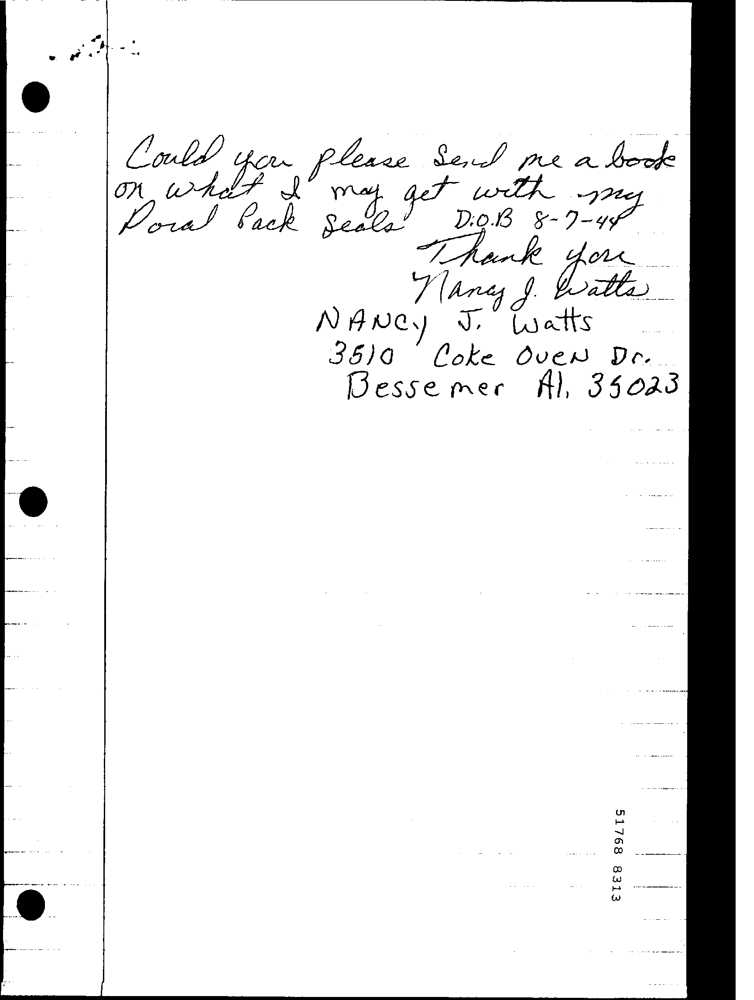 Could you please send me a book
on what I may get with my
Doral Pack Seals D.O.B 8-7-44
Thank you
Nancy J. Watts
NANCY J. Watts
3510 Coke Oven Dr.
Bessemer Al. 35023
51768 8313